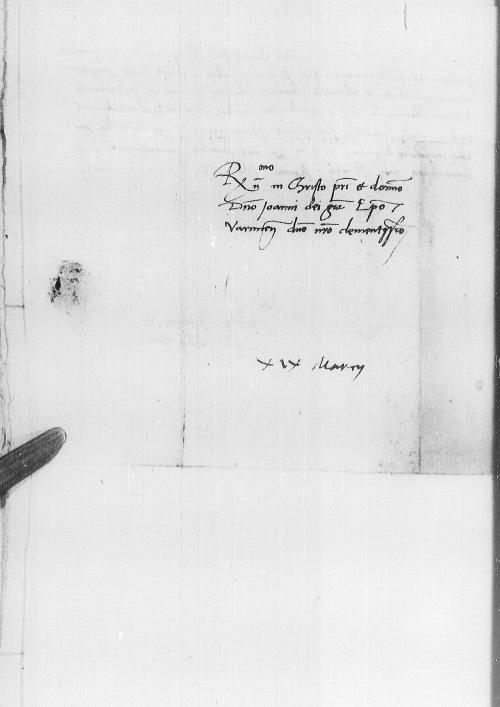 R[ono] in Christo pri et domno
Dno Joanni dei gra Epo
Varmien dno nro clementissio
XIX Marcij